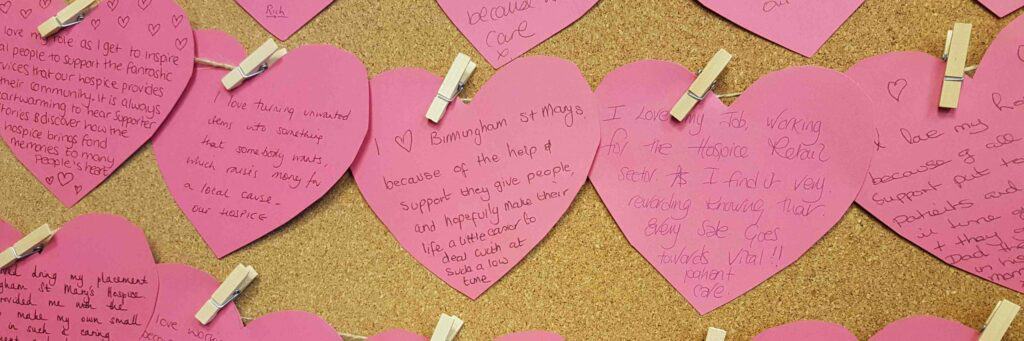 Ruh
because
care
x
love my role as I get to inspire
people to support the fantastic
services that our hospice provides
their community. It is always
heartwarming to hear supporter
stories & discover how the
hospice brings fond
memories to many
People's heart
I love turning unwanted
items into something
that somebody wants,
which raises money for
a local cause -
our HOSPICE
I ♡ Birmingham St Mary's,
because of the help &
support they give people,
and hopefully make their
life, a little easier to
deal with at
such a low
time
I Love My Job, working
for the Hospice Retail
sector. As I find it very,
rewarding knowing that.
Every Sale Goes
towards Vital!!
patient
care.
I love my
because of all
Support put
Patients and
& they
Dad
in
during my placement
St Mary's Hospice
provided me with the
to make my own small
in such a caring
love